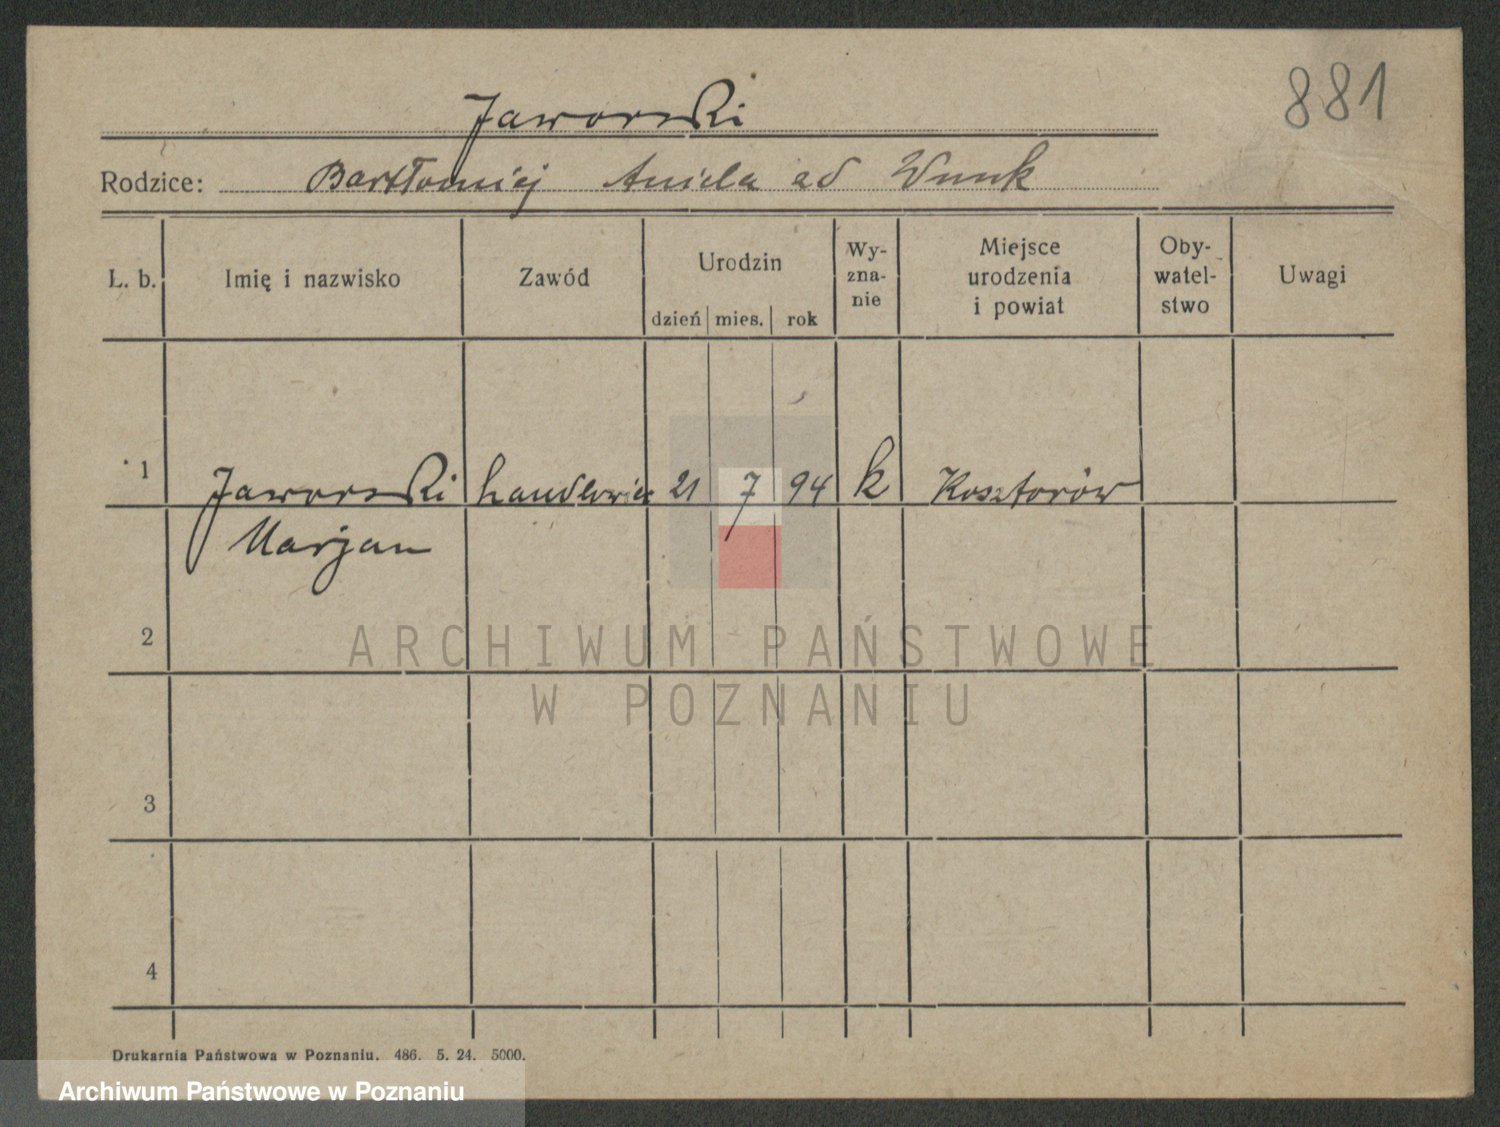 881
Jaworski
Rodzice: Bartłomiej Aniela ad Wnuk
L. b. Imię i nazwisko Zawód Urodzin Wy-zna-nie Miejsce urodzenia i powiat Oby-watel-stwo Uwagi
dzień mies. rok
1 Jaworski handlowiec 21 7 94 k Kosztorów
Marjan
2
ARCHIWUM PAŃSTWOWE
W POZNANIU
3
4
Drukarnia Państwowa w Poznaniu. 486. 5. 24. 5000.
Archiwum Państwowe w Poznaniu